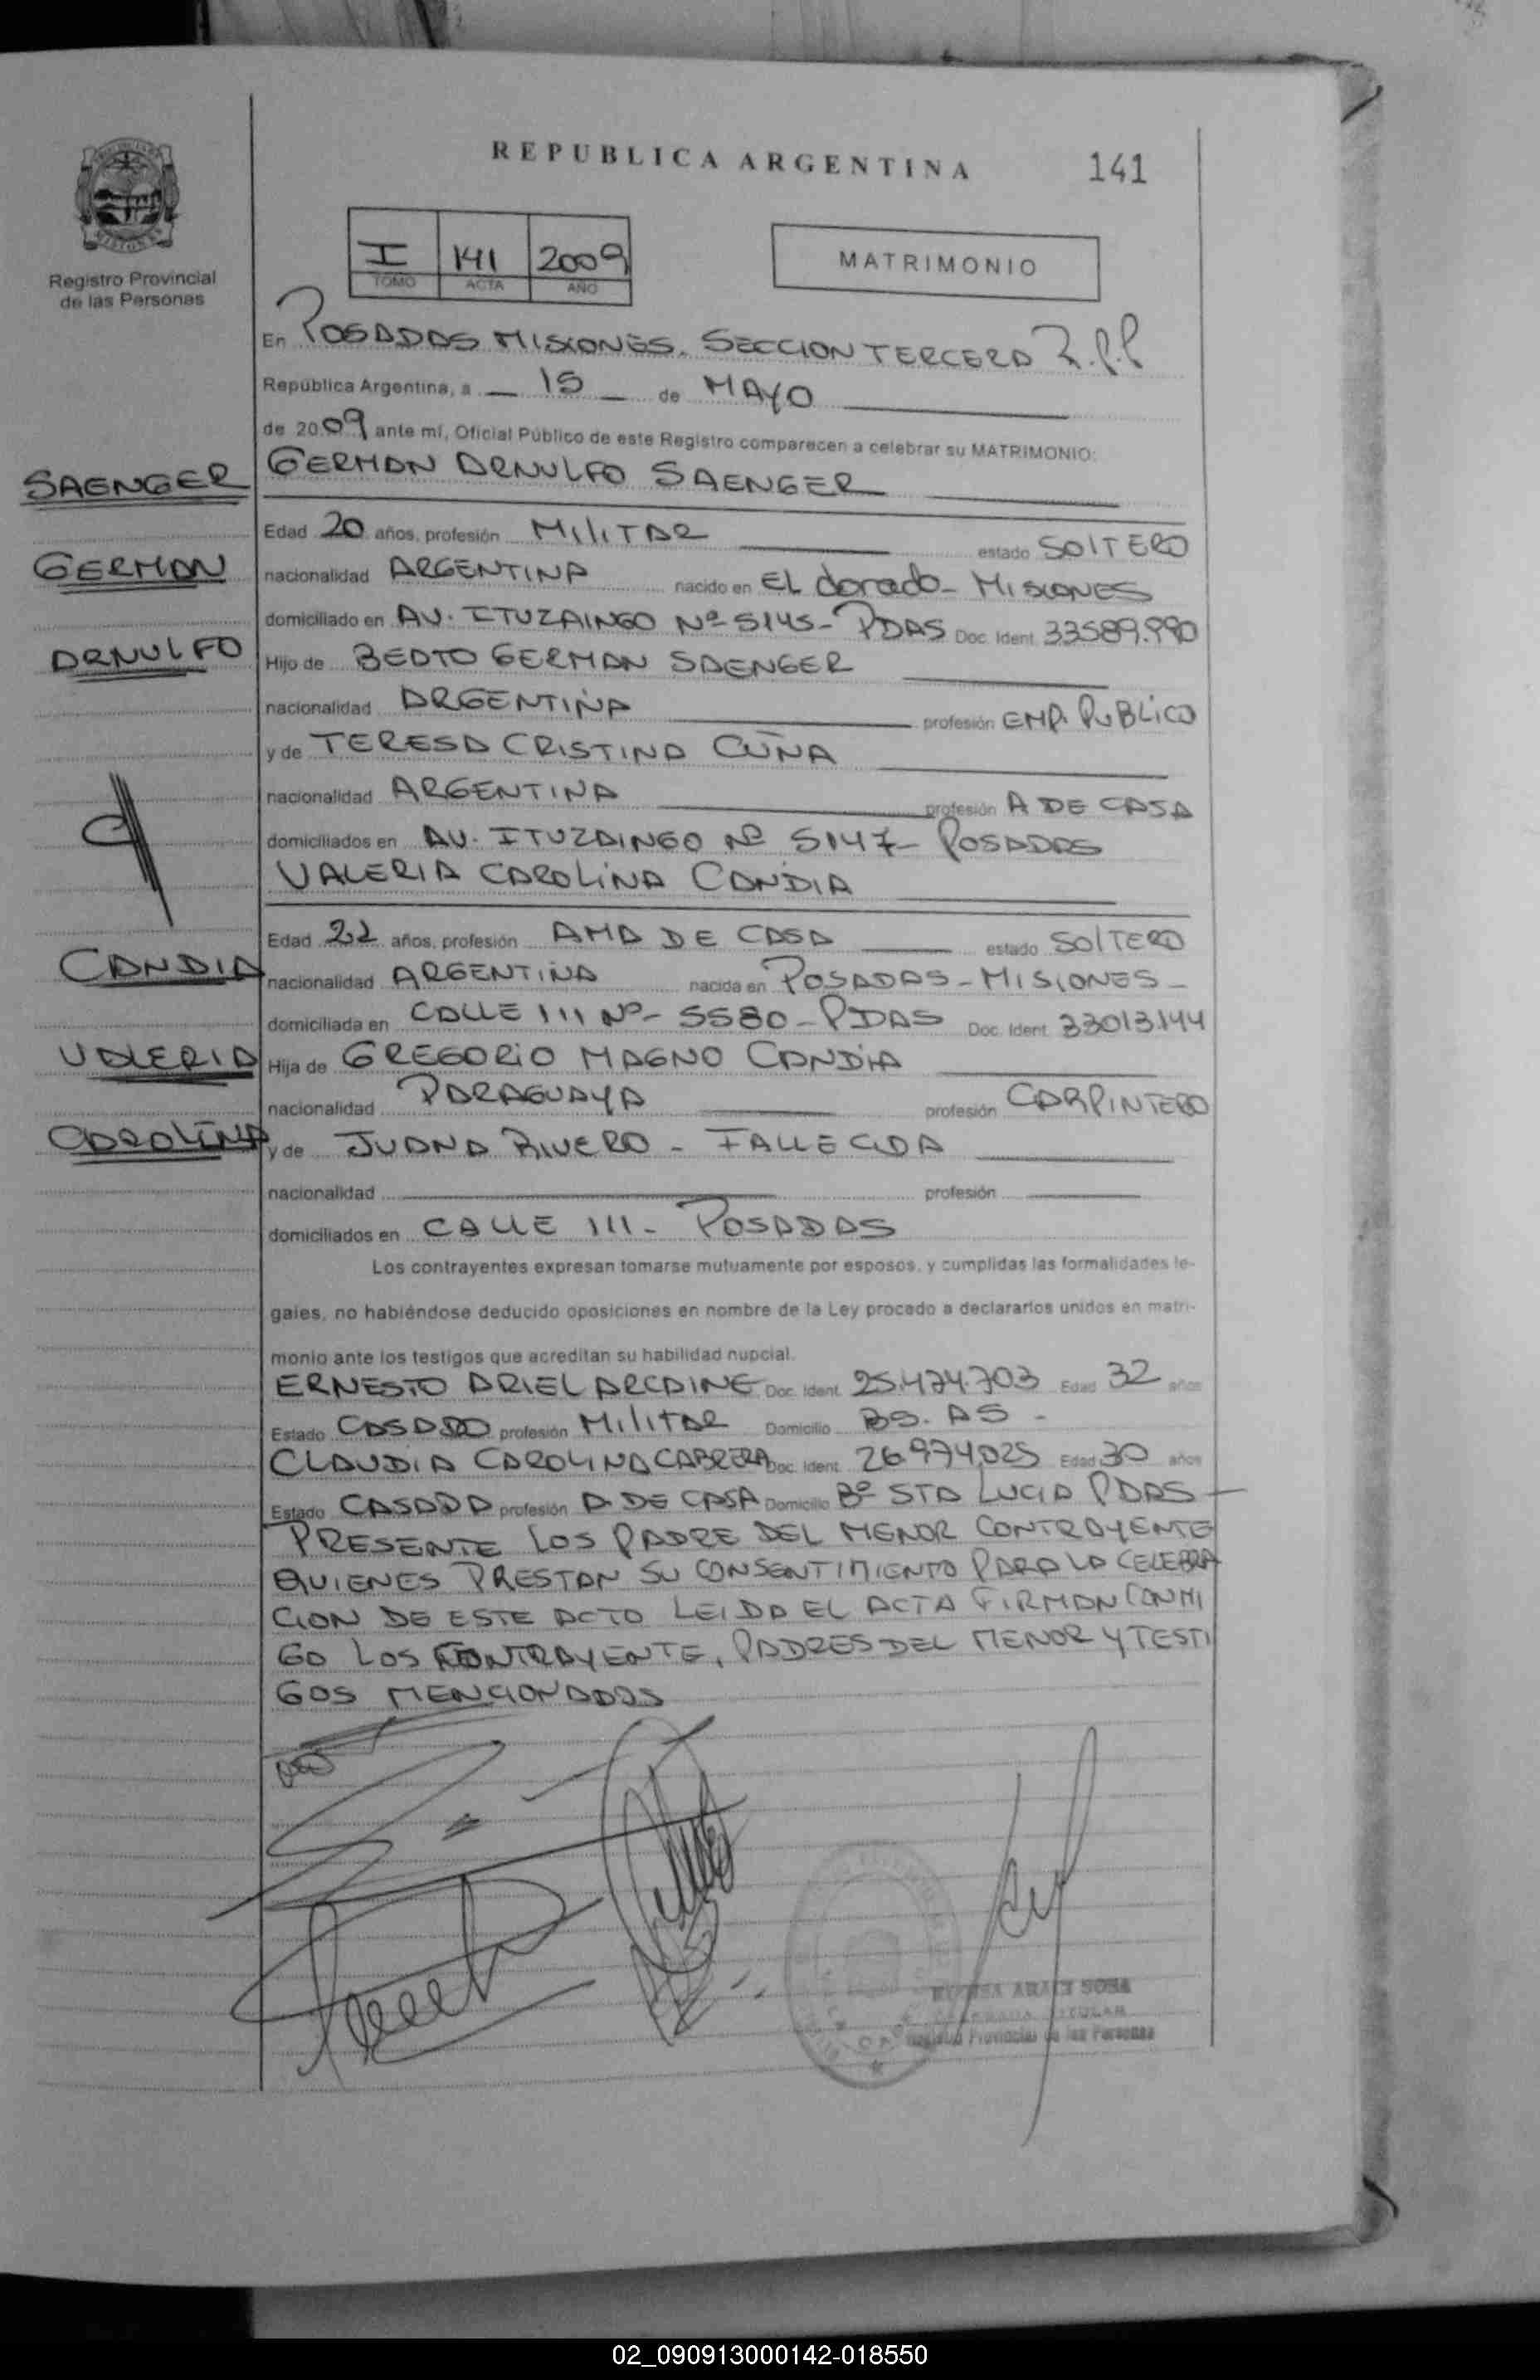 REPUBLICA ARGENTINA
141
Registro Provincial
de las Personas
I 141 2009
TOMO ACTA AÑO
MATRIMONIO
En POSADAS MISIONES. SECCION TERCERA R.P.P
República Argentina, a 15 de MAYO
de 2009 ante mí, Oficial Público de este Registro comparecen a celebrar su MATRIMONIO:
SAENGER
GERMAN ARNULFO SAENGER
Edad 20 años, profesión MILITAR estado SOLTERO
GERMAN
nacionalidad ARGENTINA nacido en EL dorado - MISIONES
domiciliado en AV. ITUZAINGO Nº 5145 - PDAS Doc. Ident. 33589.990
ARNULFO
Hijo de BEATO GERMAN SAENGER
nacionalidad ARGENTINA profesión EMP. PUBLICO
y de TERESA CRISTINA CUÑA
nacionalidad ARGENTINA profesión A DE CASA
domiciliados en AV. ITUZAINGO Nº 5147 - POSADAS
VALERIA CAROLINA CANDIA
Edad 22 años, profesión AMA DE CASA estado SOLTERO
CANDIA
nacionalidad ARGENTINA nacida en POSADAS - MISIONES -
domiciliada en CALLE 111 Nº - 5580 - PDAS Doc. Ident. 33013.144
VALERIA
Hija de GREGORIO MAGNO CANDIA
nacionalidad PARAGUAYA profesión CARPINTERO
CAROLINA
y de JUANA RIVERO - FALLECIDA
nacionalidad profesión
domiciliados en CALLE 111 - POSADAS
Los contrayentes expresan tomarse mutuamente por esposos, y cumplidas las formalidades le-
gales, no habiéndose deducido oposiciones en nombre de la Ley procedo a declararlos unidos en matri-
monio ante los testigos que acreditan su habilidad nupcial.
ERNESTO ARIEL ARCAINE Doc. Ident. 25.474.703 Edad 32 años
Estado CASADO profesión MILITAR Domicilio BS. AS -
CLAUDIA CAROLINA CABRERA Doc. Ident. 26.974.025 Edad 30 años
Estado CASADA profesión A. DE CASA Domicilio Bº STA LUCIA PDAS -
PRESENTE LOS PADRE DEL MENOR CONTRAYENTE
QUIENES PRESTAN SU CONSENTIMIENTO PARA LA CELEBRA
CION DE ESTE ACTO LEIDA EL ACTA FIRMAN CONMI
GO LOS CONTRAYENTE, PADRES DEL MENOR Y TESTI
GOS MENCIONADOS
SOSA
Registro Provincial de las Personas
02_090913000142-018550